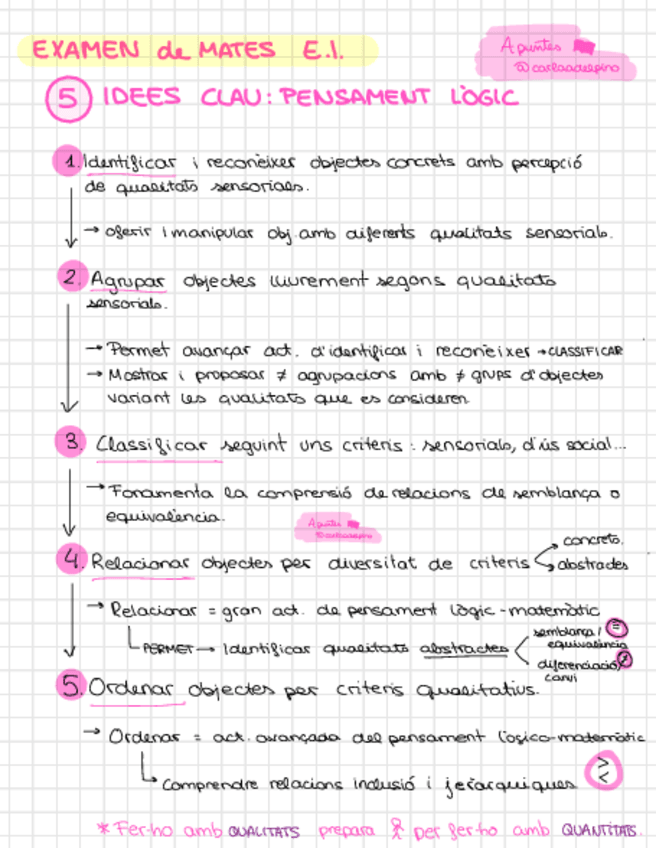 EXAMEN de MATES E.I.
Apuntes
@carlaadelpino
5 IDEES CLAU: PENSAMENT LÒGIC
1. Identificar i reconèixer objectes concrets amb percepció
de qualitats sensorials.
→ oferir i manipular obj. amb diferents qualitats sensorials.
2. Agrupar objectes lliurement segons qualitats
sensorials.
→ Permet avançar act. d'identificar i reconèixer → CLASSIFICAR
→ Mostrar i proposar ≠ agrupacions amb ≠ grups d'objectes
variant les qualitats que es consideren
3. Classificar seguint uns criteris: sensorials, d'ús social...
→ Fonamenta la comprensió de relacions de semblança o
equivalència.
Apuntes
@carlaadelpino
4. Relacionar objectes per diversitat de criteris
concrets.
abstractes
→ Relacionar = gran act. de pensament lògic-matemàtic
PERMET → Identificar qualitats abstractes
semblança / =
equivalència
diferenciació/ ≠
canvi
5. Ordenar objectes per criteris qualitatius.
→ Ordenar = act. avançada del pensament lògico-matemàtic
Comprendre relacions inclusió i jeràrquiques
>
<
* Fer-ho amb QUALITATS prepara per fer-ho amb QUANTITATS.